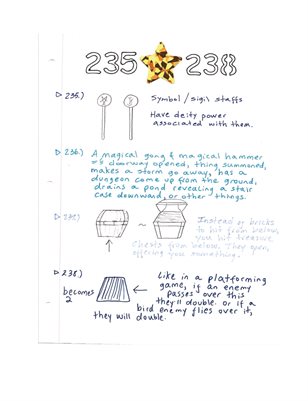 235 238
235.)
Symbol/sigil staffs
Have deity power
associated with them.
236.)
A magical gong & magical hammer
= a doorway opened, thing summoned,
makes a storm go away, has a
dungeon come up from the ground,
drains a pond revealing a stair
case downward, or other things.
237.)
~
Instead of bricks
to hit from below,
you hit treasure
chests from below. They open,
offering you something.
238.)
becomes
2
Like in a platforming
game, if an enemy
passes over this
they'll double. or if a
bird enemy flies over it,
they will double.